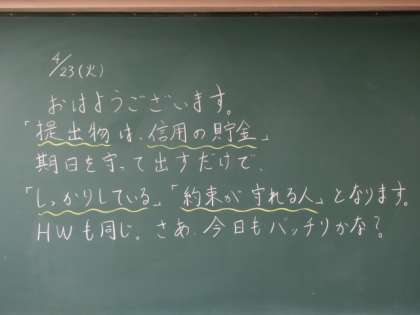 4/23(火)
おはようございます。
「提出物は、信用の貯金」
期日を守って出すだけで、
「しっかりしている」「約束が守れる人」となります。
HWも同じ。さあ、今日もバッチリかな？